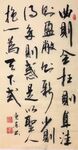 曲則全枉則直窪
則盈敝則新少則
得多則惑是以聖人
抱一為天下式